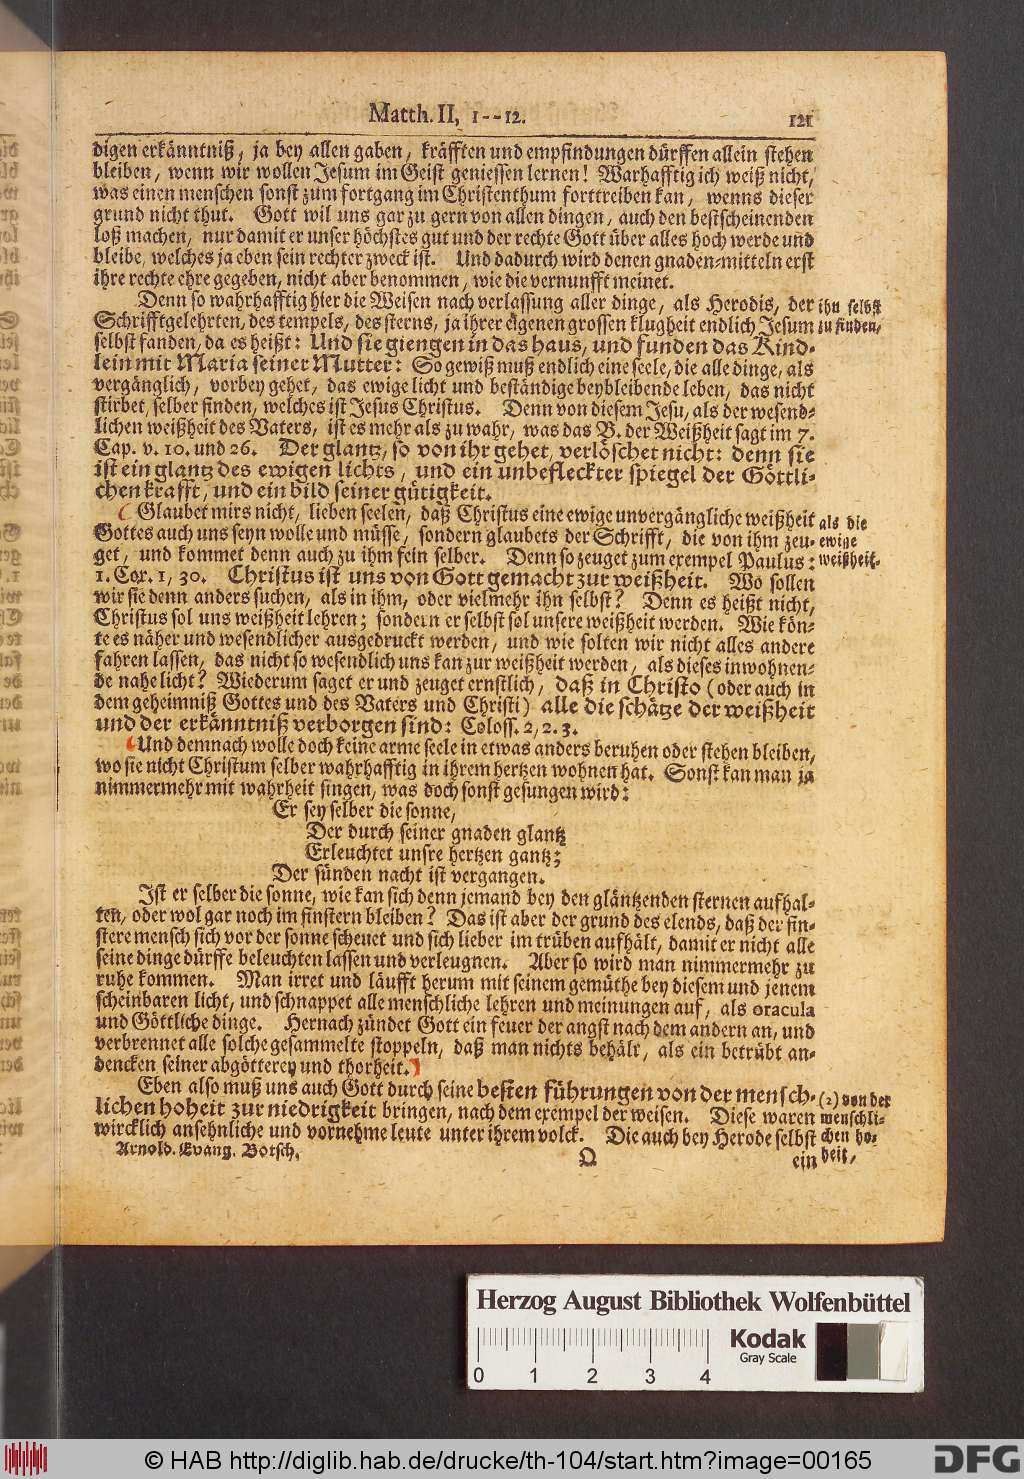 Matth. II, 1--12. 121
digen erkänntniß, ja bey allen gaben, kräfften und empfindungen dürffen allein stehen
bleiben, wenn wir wollen Jesum im Geist geniessen lernen! Warhafftig ich weiß nicht,
was einen menschen sonst zum fortgang im Christenthum forttreiben kan, wenns dieser
grund nicht thut. Gott wil uns gar zu gern von allen dingen, auch den bestscheinenden
loß machen, nur damit er unser höchstes gut und der rechte Gott über alles hoch werde und
bleibe, welches ja eben sein rechter zweck ist. Und dadurch wird denen gnaden-mitteln erst
ihre rechte ehre gegeben, nicht aber benommen, wie die vernunfft meinet.
Denn so wahrhafftig hier die Weisen nach verlassung aller dinge, als Herodis, der
Schrifftgelehrten, des tempels, des sterns, ja ihrer eigenen grossen klugheit endlich Jesum
selbst fanden, da es heißt: Und sie giengen in das haus, und funden das Kind-
lein mit Maria seiner Mutter: So gewiß muß endlich eine seele, die alle dinge, als
vergänglich, vorbey gehet, das ewige licht und beständige beybleibende leben, das nicht
stirbet, selber finden, welches ist Jesus Christus. Denn von diesem Jesu, als der wesend-
lichen weißheit des Vaters, ist es mehr als zu wahr, was das B. der Weißheit sagt im 7.
Cap. v. 10. und 26. Der glantz, so von ihr gehet, verlöschet nicht: denn sie
ist ein glantz des ewigen lichts, und ein unbefleckter spiegel der Göttli-
chen krafft, und ein bild seiner gütigkeit.
ihn selbst
zu finden,
Glaubet mirs nicht, lieben seelen, daß Christus eine ewige unvergängliche weißheit
Gottes auch uns seyn wolle und müsse, sondern glaubets der Schrifft, die von ihm zeu-
get, und kommet denn auch zu ihm fein selber. Denn so zeuget zum exempel Paulus:
1. Cor. 1, 30. Christus ist uns von Gott gemacht zur weißheit. Wo sollen
wir sie denn anders suchen, als in ihm, oder vielmehr ihn selbst? Denn es heißt nicht,
Christus sol uns weißheit lehren; sondern er selbst sol unsere weißheit werden. Wie kön-
te es näher und wesendlicher ausgedruckt werden, und wie solten wir nicht alles andere
fahren lassen, das nicht so wesendlich uns kan zur weißheit werden, als dieses inwohnen-
de nahe licht? Wiederum saget er und zeuget ernstlich, daß in Christo (oder auch in
dem geheimniß Gottes und des Vaters und Christi) alle die schätze der weißheit
und der erkänntniß verborgen sind: Coloss. 2, 2. 3.
als die
ewige
weißheit.
Und demnach wolle doch keine arme seele in etwas anders beruhen oder stehen bleiben,
wo sie nicht Christum selber wahrhafftig in ihrem hertzen wohnen hat. Sonst kan man ja
nimmermehr mit wahrheit singen, was doch sonst gesungen wird:
Er sey selber die sonne,
Der durch seiner gnaden glantz
Erleuchtet unsre hertzen gantz;
Der sünden nacht ist vergangen.
Ist er selber die sonne, wie kan sich denn jemand bey den gläntzenden sternen aufhal-
ten, oder wol gar noch im finstern bleiben? Das ist aber der grund des elends, daß der fin-
stere mensch sich vor der sonne scheuet und sich lieber im trüben aufhält, damit er nicht alle
seine dinge dürffe beleuchten lassen und verleugnen. Aber so wird man nimmermehr zu
ruhe kommen. Man irret und läufft herum mit seinem gemüthe bey diesem und jenem
scheinbaren licht, und schnappet alle menschliche lehren und meinungen auf, als oracula
und Göttliche dinge. Hernach zündet Gott ein feuer der angst nach dem andern an, und
verbrennet alle solche gesammelte stoppeln, daß man nichts behält, als ein betrübt an-
dencken seiner abgötterey und thorheit.
Eben also muß uns auch Gott durch seine besten führungen von der mensch-
lichen hoheit zur niedrigkeit bringen, nach dem exempel der weisen. Diese waren
wircklich ansehnliche und vornehme leute unter ihrem volck. Die auch bey Herode selbst
(2) von der
menschli-
chen ho-
heit,
Arnold. Evang. Botsch. Q ein
Herzog August Bibliothek Wolfenbüttel
Kodak
Gray Scale
0 1 2 3 4
© HAB http://diglib.hab.de/drucke/th-104/start.htm?image=00165
DFG